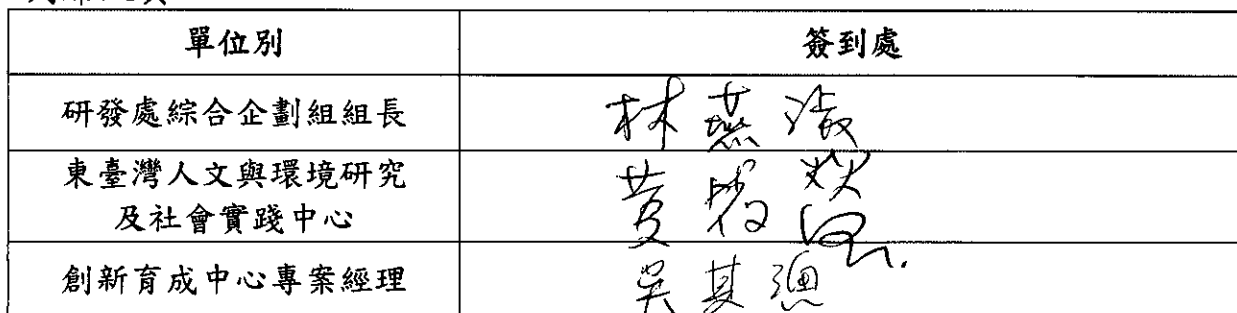 單位別 簽到處
研發處綜合企劃組組長 林燕淑
東臺灣人文與環境研究
及社會實踐中心
創新育成中心專案經理 吳其